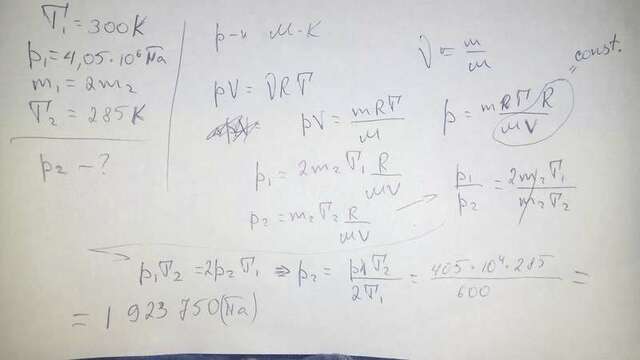 T₁ = 300 K
p₁ = 4,05·10⁶ Па
m₁ = 2m₂
T₂ = 285 K
p₂ - ?
р-и М-К
ν = m/м
pV = νRT
pV = mRT/м
p = mRT R/мV = const.
p₁ = 2m₂T₁ R/мV
p₂ = m₂T₂ R/мV
p₁/p₂ = 2m₂T₁/m₂T₂
p₁T₂ = 2p₂T₁ ⇒ p₂ = p1T₂/2T₁ = 405·10⁴·285/600 =
= 1 923 750 (Па)